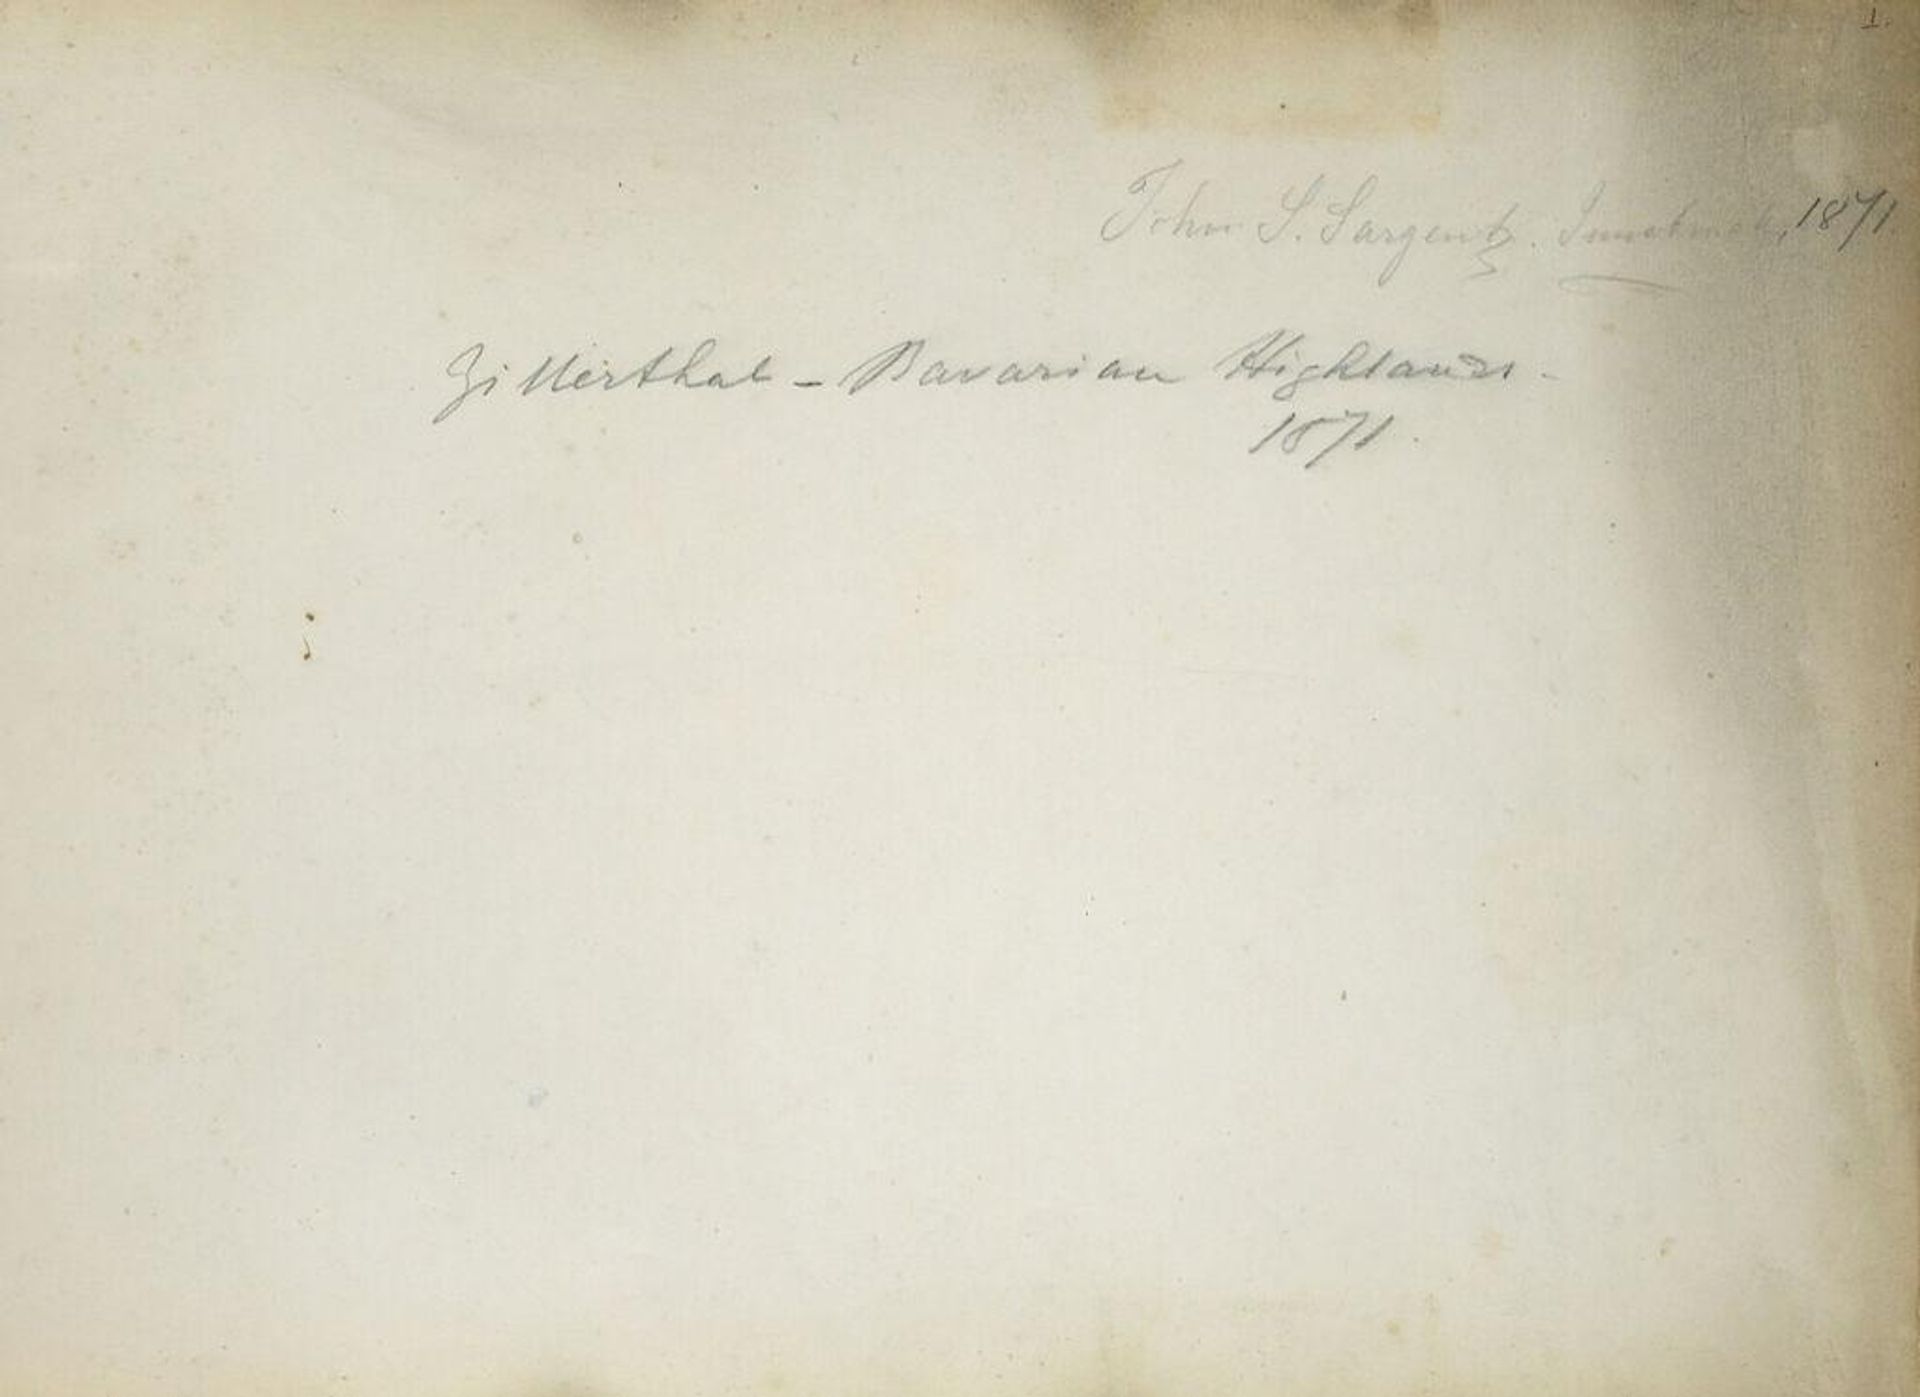 1.
John S. Sargent. Innsbruck, 1871.
Zillerthal – Bavarian Highlands.
1871.